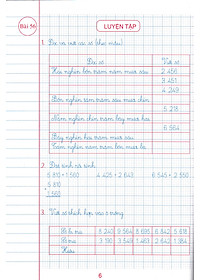 Bài 56
LUYỆN TẬP
1. Đọc rồi viết các số (theo mẫu):
Đọc số
Viết số
Hai nghìn bốn trăm năm mươi sáu
2 456
3 451
4 249
Bốn nghìn tám trăm sáu mươi chín
5 218
Năm nghìn chín trăm bảy mươi hai
6 564
Bảy nghìn hai trăm mười sáu
Tám nghìn năm trăm bốn mươi ba
2. Đặt tính rồi tính:
5 810 + 1 560
4 425 + 2 643
6 546 + 2 550
5 810
+
1 560
3. Viết số thích hợp vào ô trống:
Số bị trừ
8 240
9 564
8 695
6 842
5 618
Số trừ
3 190
3 549
1 463
2 642
1 384
Hiệu
6